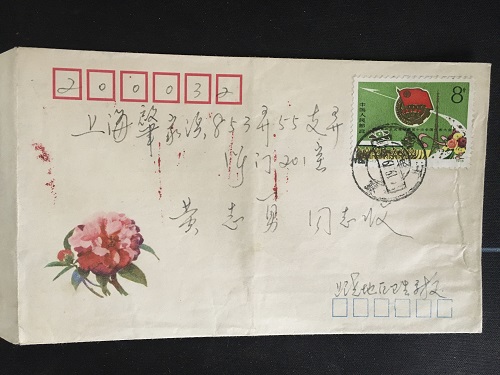 200032
8分
中国人民邮政
上海肇家浜853弄55支弄
1号门201室
黄志勇 同志收
地区卫生学校